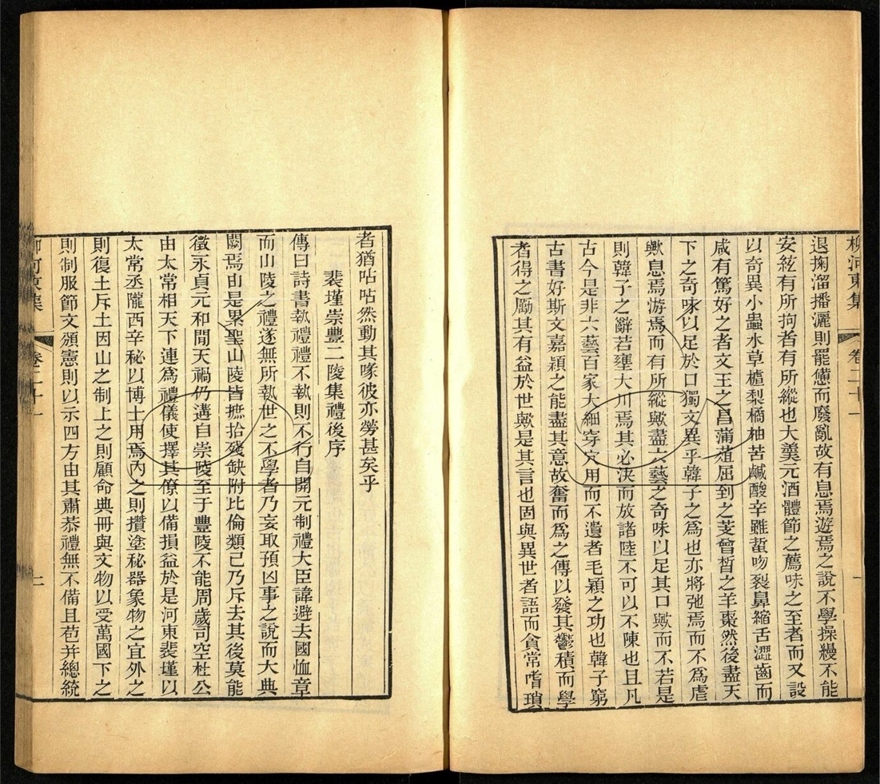 柳河東集
卷二十一
退掬溜播灑則罷憊而廢亂故有息焉遊焉之說不學操縵不能
安絃有所拘者有所縱也大羹元酒體節之薦味之至者而又設
以奇異小蟲水草樝梨橘柚苦鹹酸辛雖蜇吻裂鼻縮舌澀齒而
咸有篤好之者文王之昌蒲葅屈到之芰曾晳之羊棗然後盡天
下之奇味以足於口獨文異乎韓子之爲也亦將弛焉而不爲虐
歟息焉游焉而有所縱歟盡六藝之奇味以足其口歟而不若是
則韓子之辭若壅大川焉其必決而放諸陸不可以不陳也且凡
古今是非六藝百家大細穿穴用而不遺者毛穎之功也韓子窮
古書好斯文嘉穎之能盡其意故奮而爲之傳以發其鬱積而學
者得之勵其有益於世歟是其言也固與異世者語而貪常嗜瑣
者猶呫呫然動其喙彼亦勞甚矣乎
裴墐崇豐二陵集禮後序
傳曰詩書執禮禮不執則不行自開元制禮大臣諱避去國恤章
而山陵之禮遂無所執世之不學者乃妄取預凶事之說而大典
闕焉由是累聖山陵皆摭拾殘缺附比倫類已乃斥去其後莫能
徵永貞元和間天禍仍遘自崇陵至于豐陵不能周歲司空杜公
由太常相天下連爲禮儀使擇其僚以備損益於是河東裴墐以
太常丞隴西辛秘以博士用焉內之則攢塗秘器象物之宜外之
則復土斥土因山之制上之則顧命典冊與文物以受萬國下之
則制服節文頒憲則以示四方由其肅恭禮無不備且苞并總統
柳河東集
卷二十一
二